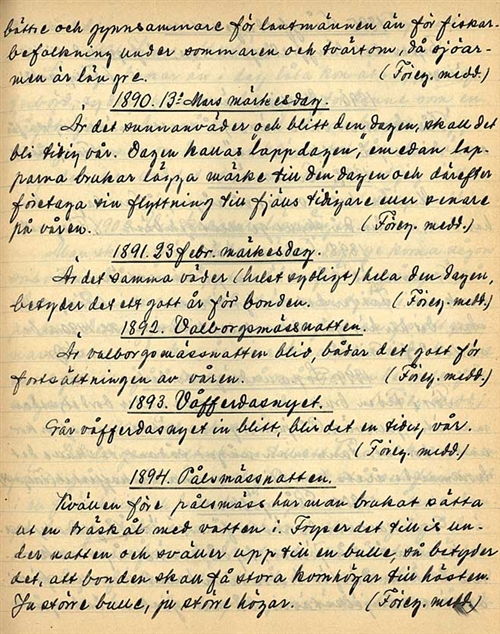 bättre och gynnsammare för lantmännen än för fiskar-
befolkning under sommaren och tvärtom, då sjöar-
men är längre. (Föreg. medd.)
1890. 13:e Mars märkesdag.
Är det sunnanväder och blitt den dagen, skall det
bli tidig vår. Dagen kallas lappdagen, emedan lap-
parna brukar lägga märke till den dagen och därefter
företaga sin flyttning till fjälls tidigare eller senare
på våren. (Föreg. medd.)
1891. 23 febr. märkesdag.
Är det samma väder (helst sydligt) hela den dagen,
betyder det ett gott år för bonden. (Föreg. medd.)
1892. Valborgsmässnatten.
Är valborgsmässnatten blid, bådar det gott för
fortsättningen av våren. (Föreg. medd.)
1893. Våfferdasnyet.
Går våfferdasnyet in blitt, blir det en tidig vår.
(Föreg. medd.)
1894. Pålsmässnatten.
Kvällen före pålsmäss har man brukat sätta
ut en träskål med vatten i. Fryser det till is un-
der natten och sväller upp till en bulle, så betyder
det, att bonden skall få stora kornhögar till hösten.
Ju större bulle, ju större högar. (Föreg. medd.)